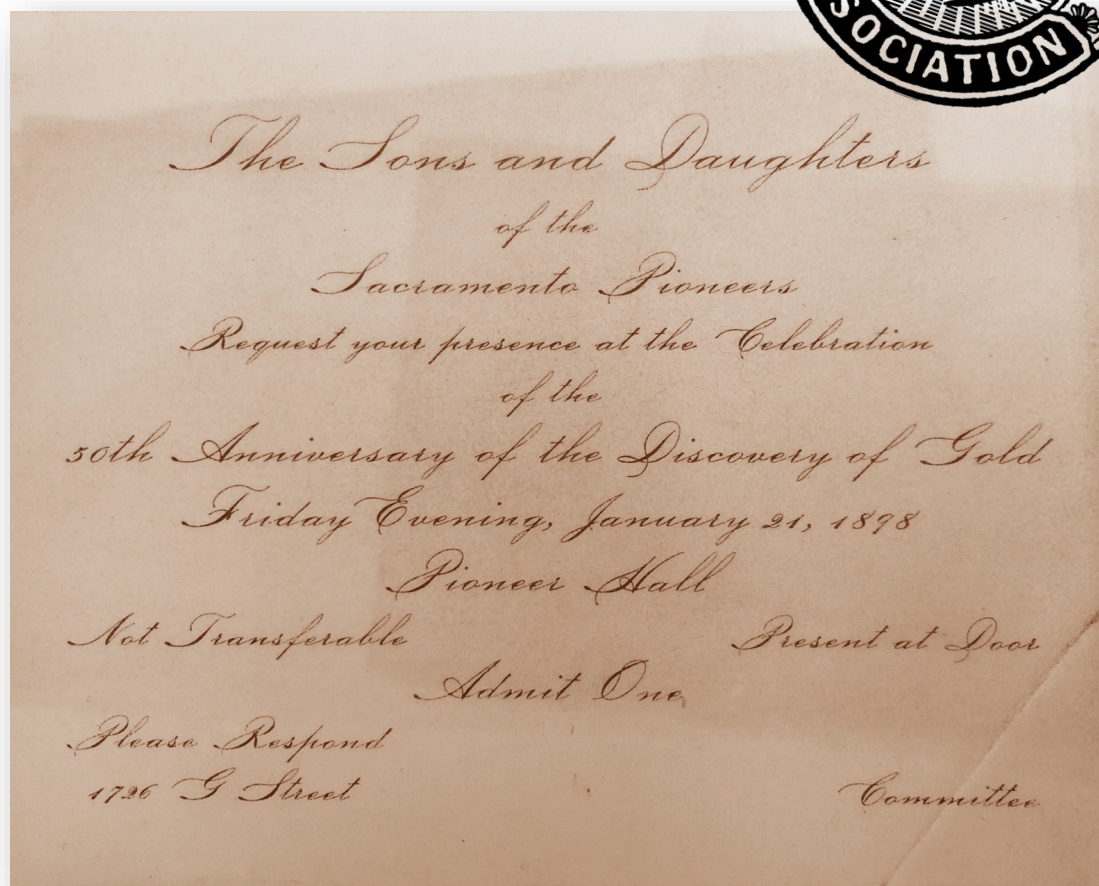 SOCIATION
The Sons and Daughters
of the
Sacramento Pioneers
Request your presence at the Celebration
of the
50th Anniversary of the Discovery of Gold
Friday Evening, January 21, 1898
Pioneer Hall
Not Transferable Present at Door
Admit One
Please Respond
1726 G Street Committee